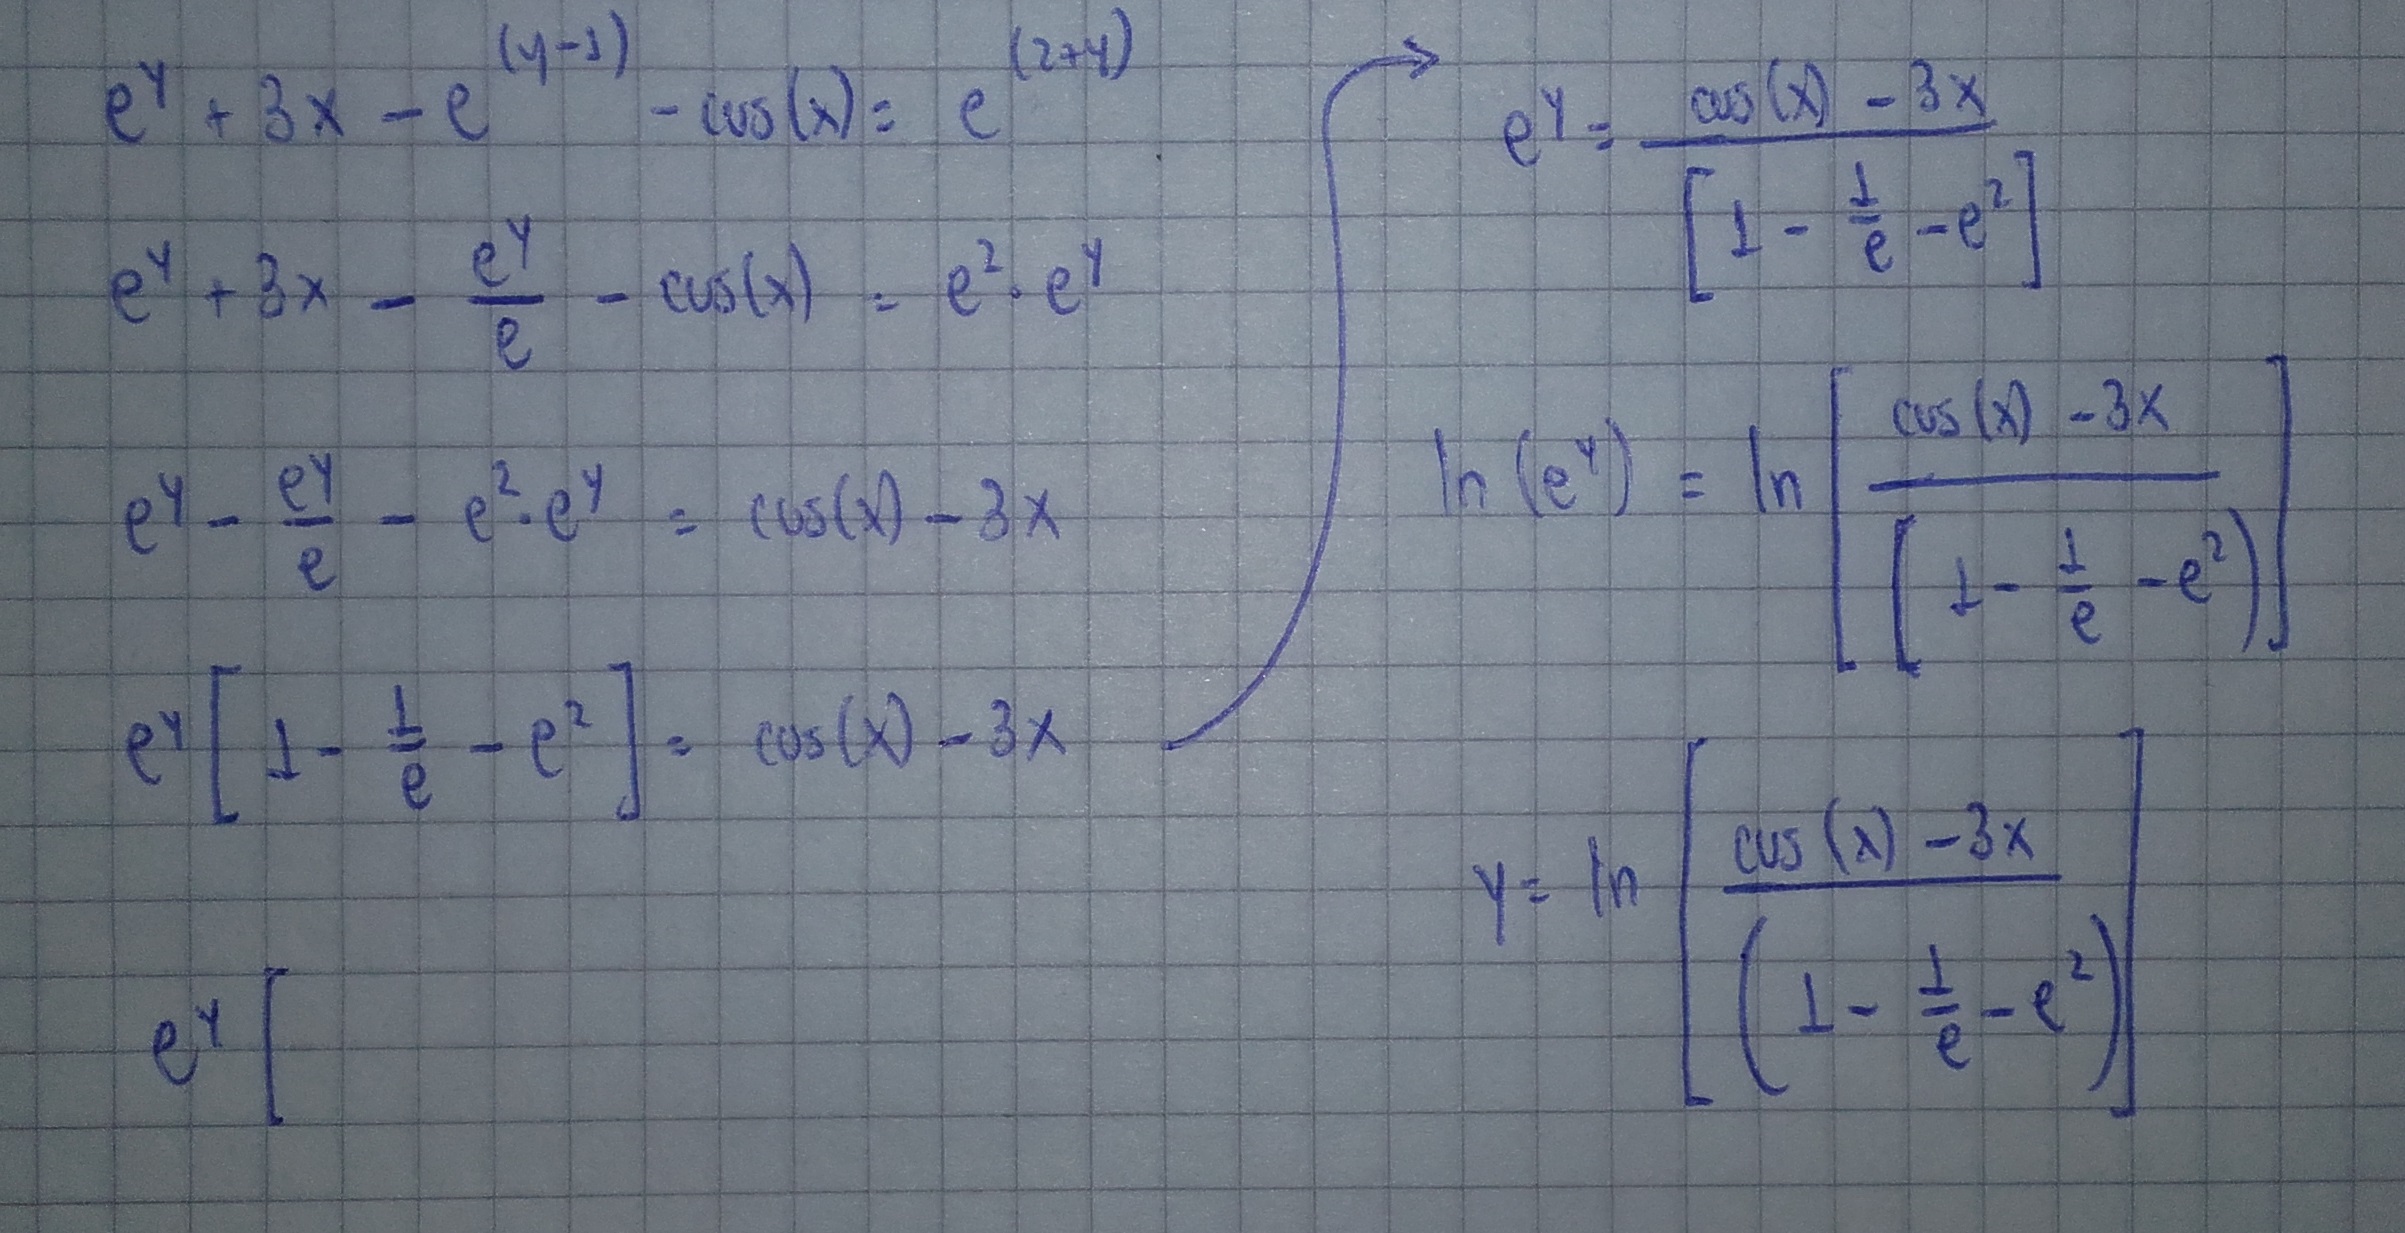 e^y + 3x - e^(y-1) - cos(x) = e^(2+y)
e^y + 3x - e^y/e - cos(x) = e^2 · e^y
e^y - e^y/e - e^2 · e^y = cos(x) - 3x
e^y [1 - 1/e - e^2] = cos(x) - 3x →
e^y [
e^y = (cos(x) - 3x)/[1 - 1/e - e^2]
ln(e^y) = ln[(cos(x) - 3x)/(1 - 1/e - e^2)]
y = ln[(cos(x) - 3x)/(1 - 1/e - e^2)]